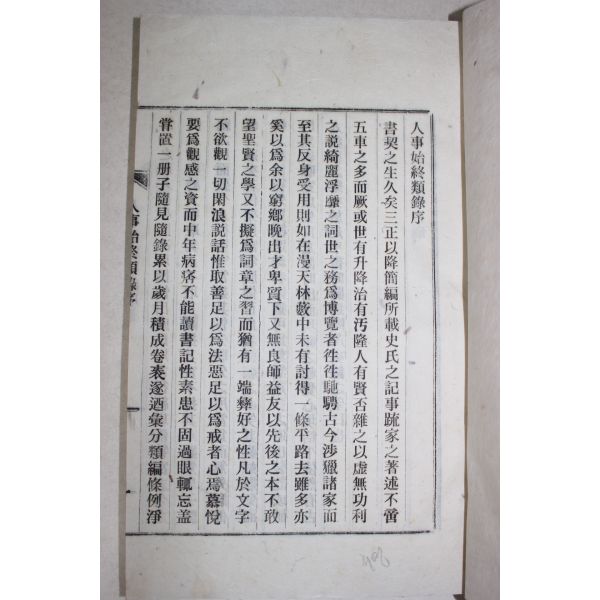 人事始終類錄序
書契之生久矣三正以降簡編所載史氏之記事䟽家之著述不啻
五車之多而厥或世有升降治有汚隆人有賢否雜之以虛無功利
之說綺麗浮靡之詞世之務爲博覽者徃徃馳騁古今涉獵諸家而
至其反身受用則如在漫天林藪中未有討得一條平路去雖多亦
奚以爲余以窮鄕晩出才卑質下又無良師益友以先後之本不敢
望聖賢之學又不擬爲詞章之習而猶有一端彝好之性凡於文字
不欲觀一切閑浪說話惟取善足以爲法惡足以爲戒者心焉慕悅
要爲觀感之資而中年病痞不能讀書記性素患不固過眼輒忘盖
甞置一册子隨見隨錄累以歲月積成卷袠遂迺彙分類編條例淨
人事始終類錄序